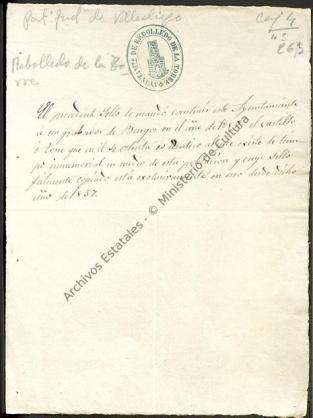 Part.º Jud.l de Villadiego
Caj 4
nº 263
Rebolledo de la To-
rre
AYUNTAMIENTO DE REBOLLEDO DE LA TORRE
El precedente Sello le mandó construir este Ayuntamiento
á un grabador de Burgos en el año de 1857 el castillo
ó Torre que en él se ostenta es idéntico al que existe de tiem-
po inmemorial en medio de esta población y cuyo sello
fielmente copiado está exclusivamente en uso desde dicho
año de 1857.
Archivos Estatales - © Ministerio de Cultura